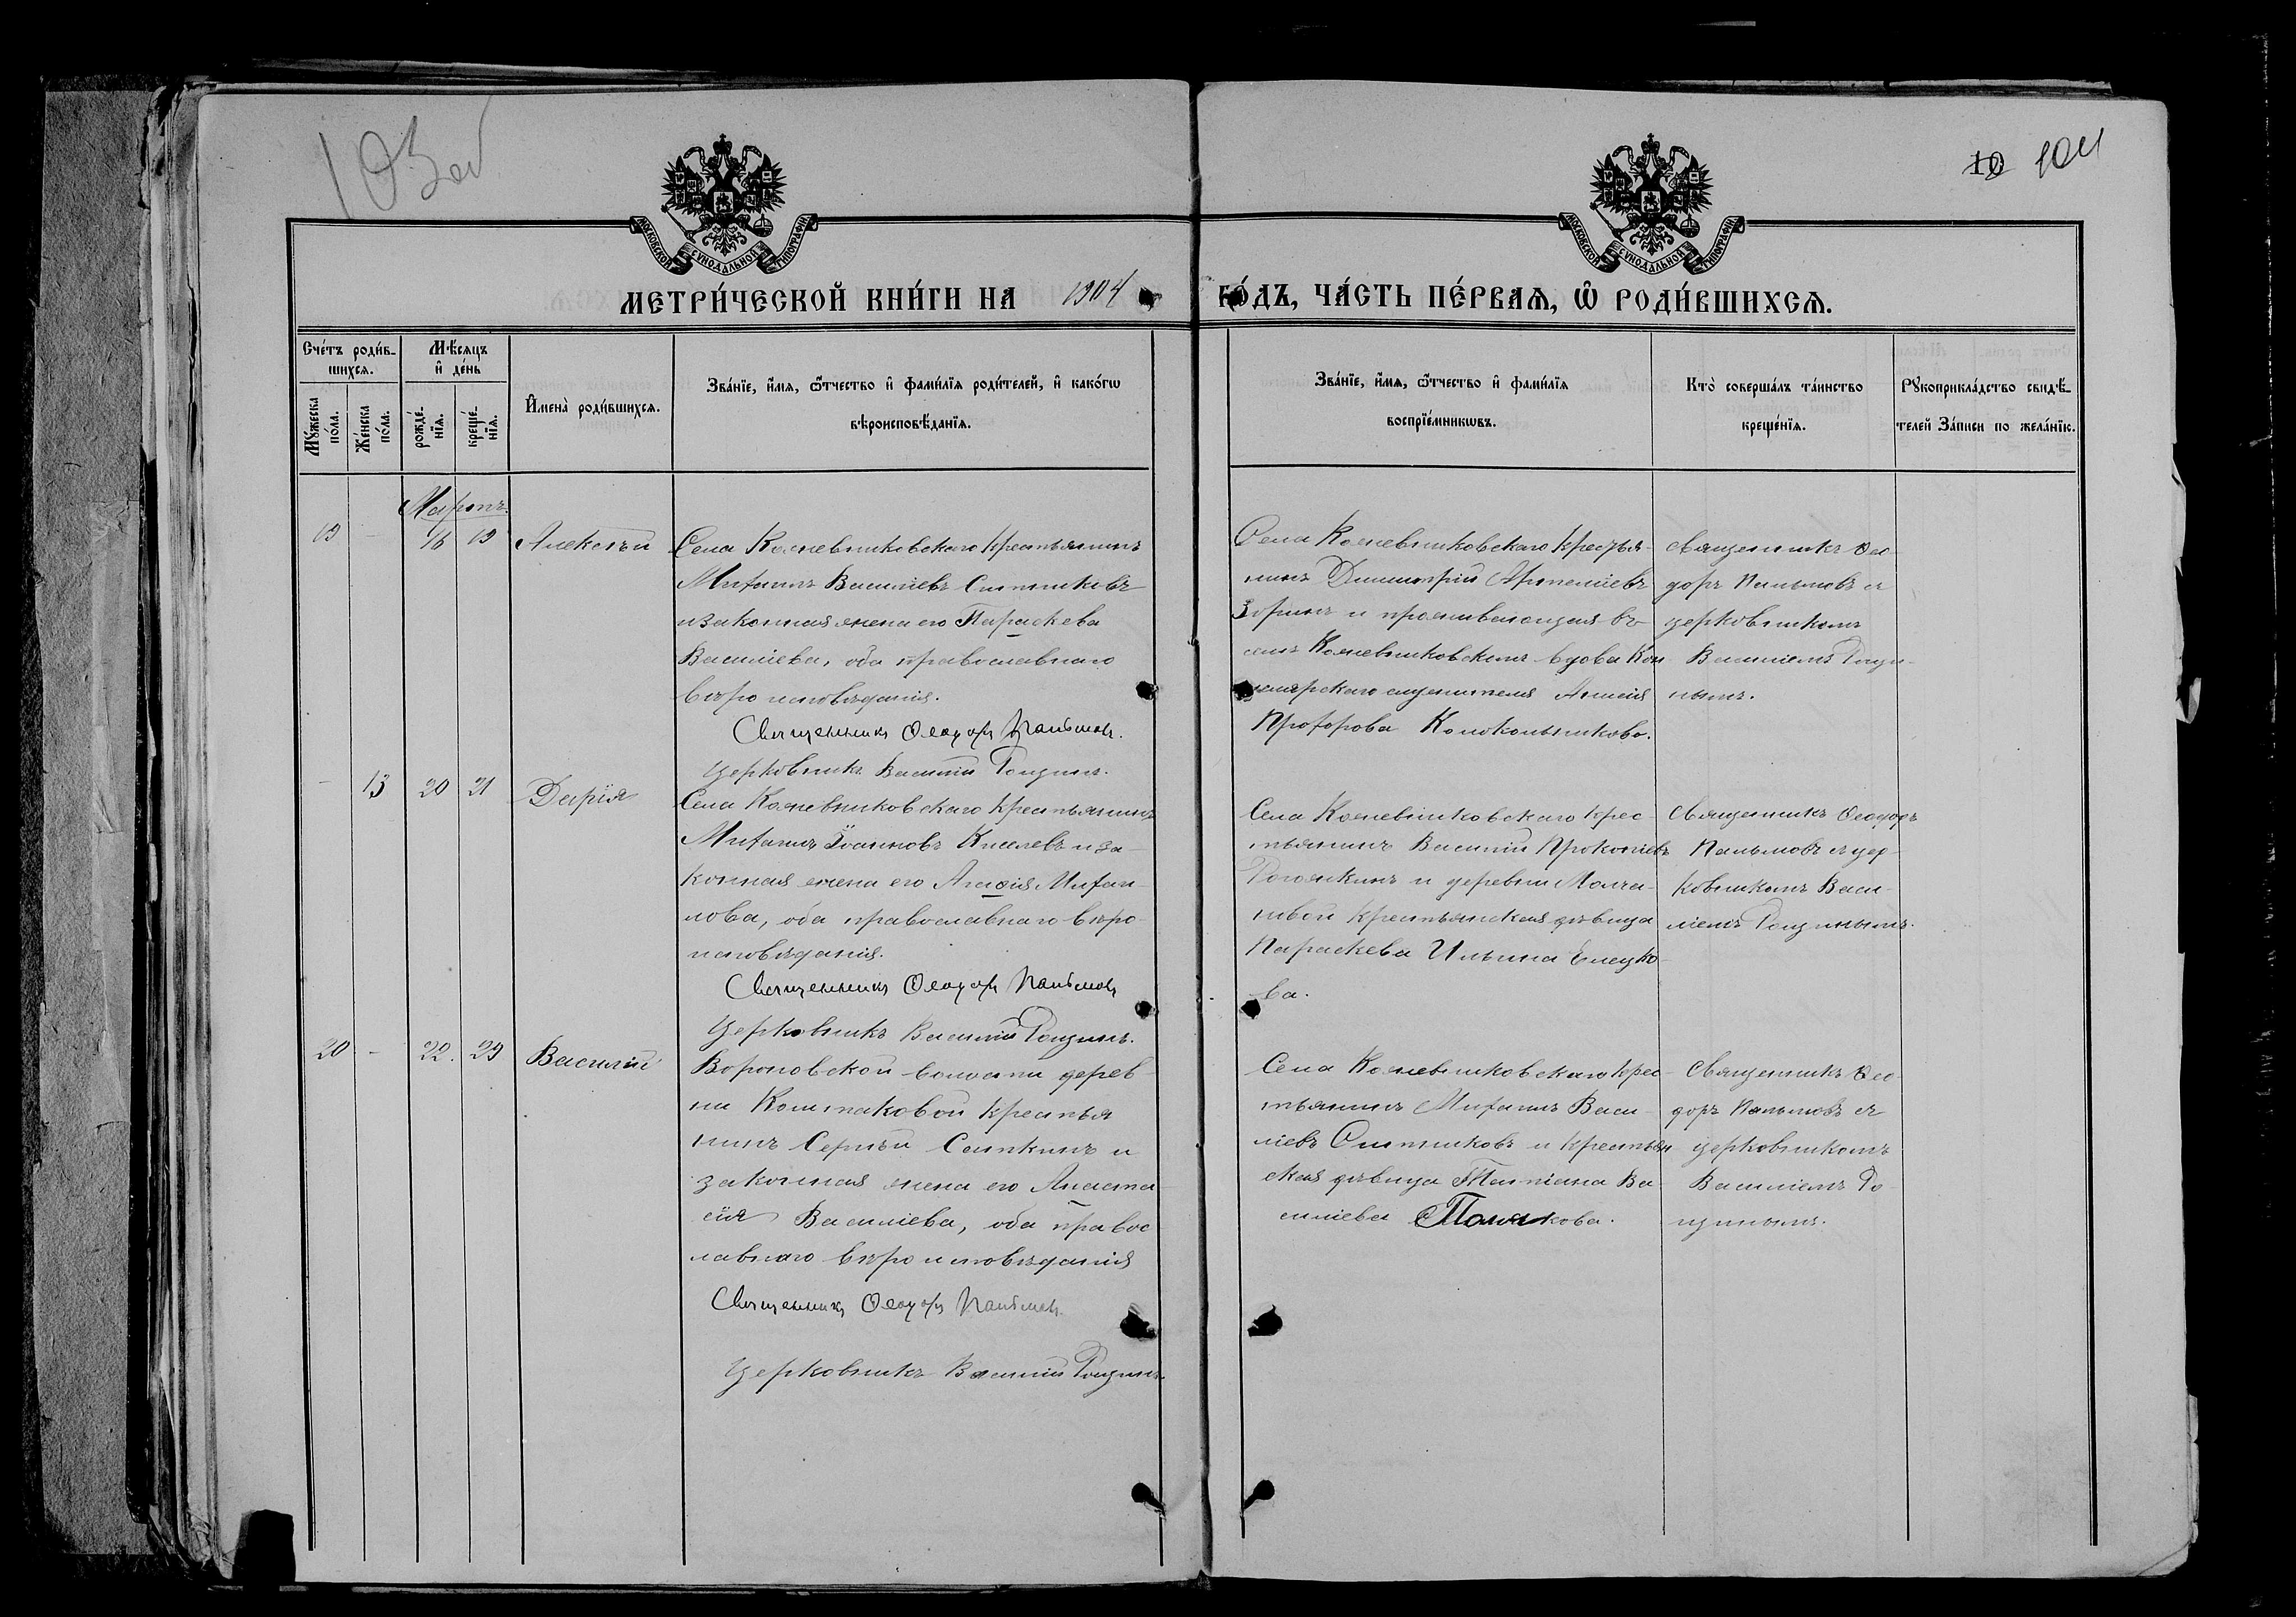 103об
10 104
МОСКОВСКОЙ СѴНОДАЛЬНОЙ ТИПОГРАФІИ
МОСКОВСКОЙ СѴНОДАЛЬНОЙ ТИПОГРАФІИ
МЕТРИ́ЧЕСКОЙ КНИ́ГИ НА 1904 ГО́ДЪ, ЧА́СТЬ ПЕ́РВАѦ, Ѡ҆ РОДИ́ВШИХСѦ.
Сче́тъ роди́в-
шихсѧ.
Мꙋ́жеска
по́ла.
Же́нска
по́ла.
Мѣ́сѧцъ
и҆ де́нь
рожде́-
нїѧ.
креще́-
нїѧ.
И҆мена̀ роди́вшихсѧ.
Зва́нїе, и҆́мѧ, ѻ҆́тчество и҆ фами́лїѧ роди́телей, и҆ како́гѡ
вѣроисповѣ́данїѧ.
Зва́нїе, и҆́мѧ, ѻ҆́тчество и҆ фами́лїѧ
воспрїе́мникѡвъ.
Кто̀ соверша́лъ та́инство
креще́нїѧ.
Рꙋкоприкла́дство свидѣ́-
телей За́писи по жела́нїю.
Мартъ.
19 - 16 19 Алексѣй
Села Кожевниковскаго крестьянинъ
Михаилъ Василіевъ Ситниковъ
и законная жена его Параскева
Василіева, оба православнаго
вѣроисповѣданія.
Священникъ Ѳеодоръ Пальмовъ.
Церковникъ Василій Рощинъ.
Села Кожевниковскаго крестья-
нинъ Димитрій Артеміевъ
Зоринъ и проживающая въ
селѣ Кожевниковскомъ вдова
служителя
Прохорова Колокольникова.
Священникъ Ѳео-
доръ Пальмовъ съ
церковникомъ
Василіемъ Рощи-
нымъ.
- 13 20 21 Дарія
Села Кожевниковскаго крестьянинъ
Михаилъ Іоанновъ Киселевъ и за-
конная жена его Агаѳія Михаи-
лова, оба православнаго вѣро-
исповѣданія.
Священникъ Ѳеодоръ Пальмовъ
Церковникъ Василій Рощинъ.
Села Кожевниковскаго крес-
тьянинъ Василій Прокопіевъ
Рогожкинъ и деревни Молча-
новой крестьянская дѣвица
Параскева Ильина Елецко-
ва.
Священникъ Ѳеодоръ
Пальмовъ съ цер-
ковникомъ Васи-
ліемъ Рощинымъ.
20 - 22. 29 Василій
Вороновской волости дерев-
ни крестья
нинъ Сергѣй и
законная жена его Анаста-
сія Василіева, оба правос-
лавнаго вѣроисповѣданія
Священникъ Ѳеодоръ Пальмовъ
Церковникъ Василій Рощинъ.
Села Кожевниковскаго крес-
тьянинъ Михаилъ Васи-
ліевъ Ситниковъ и крестьян
ская дѣвица Татіана Ва-
силіева Полякова.
Священникъ Ѳео-
доръ Пальмовъ съ
церковникомъ
Василіемъ Ро-
щинымъ.